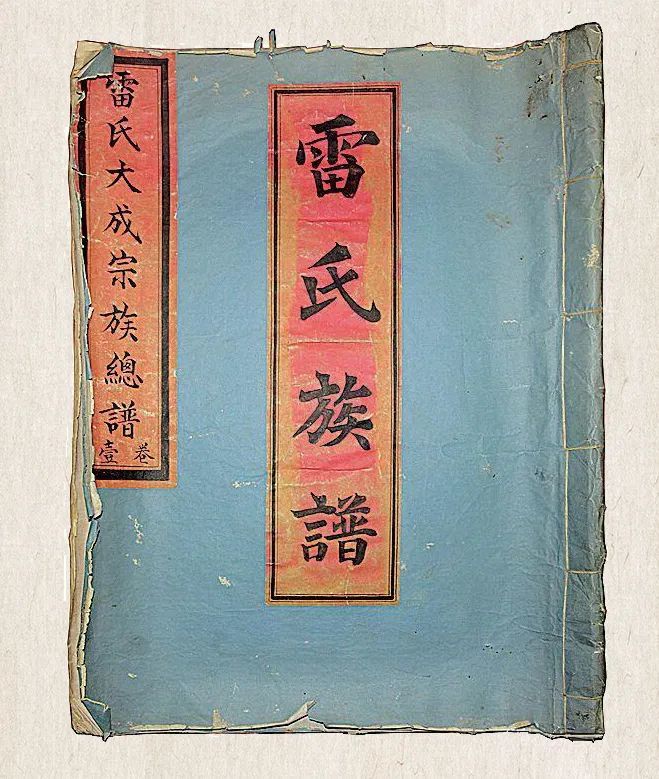 雷氏族譜
雷氏大成宗族總譜
卷壹